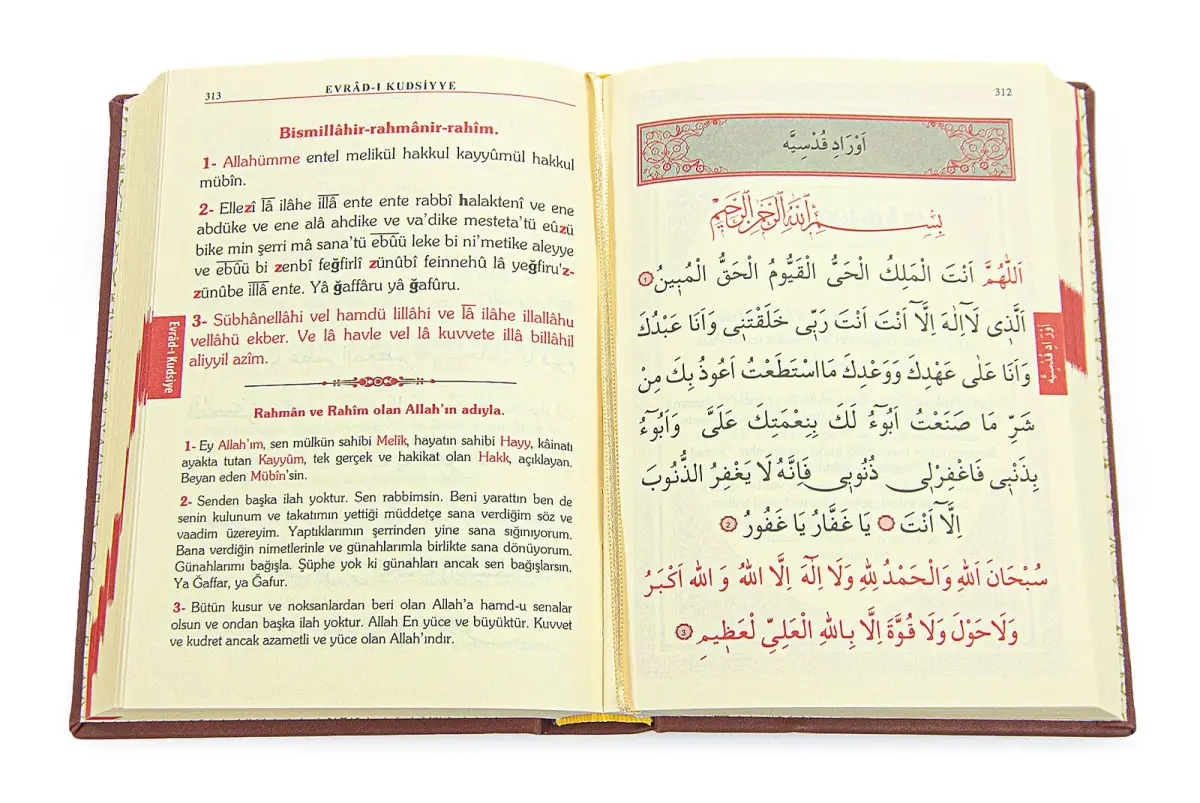 312
اَوْرَادِ قُدْسِيَّه
بِسْــــمِ اللهِ الرَّحْمٰنِ الرَّحِيمِ
اَللّٰهُمَّ اَنْتَ الْمَلِكُ الْحَىُّ الْقَيُّومُ الْحَقُّ الْمُبِينُ ١
اَلَّذِى لَآاِلٰهَ اِلَّآ اَنْتَ اَنْتَ رَبِّى خَلَقْتَنِى وَاَنَا عَبْدُكَ
وَاَنَا عَلٰى عَهْدِكَ وَوَعْدِكَ مَااسْتَطَعْتُ اَعُوذُ بِكَ مِنْ
شَرِّ مَا صَنَعْتُ اَبُوٓءُ لَكَ بِنِعْمَتِكَ عَلَىَّ وَاَبُوٓءُ
بِذَنْبِى فَاغْفِرْلِى ذُنُوبِى فَاِنَّهُ لَا يَغْفِرُ الذُّنُوبَ
اِلَّآ اَنْتَ يَا غَفَّارُ يَا غَفُورُ ٢
سُبْحَانَ اللهِ وَالْحَمْدُ لِلّٰهِ وَلَا اِلٰهَ اِلَّا اللهُ وَ الله اَكْبَرُ
وَلَاحَوْلَ وَلَا قُوَّةَ اِلَّا بِاللهِ الْعَلِىِّ لْعَظِيمِ ٣
اَوْرَادِ قُدْسِيَّه
313
EVRÂD-I KUDSİYYE
Bismillâhir-rahmânir-rahîm.
1- Allahümme entel melikül hakkul kayyûmül hakkul
mübîn.
2- Ellezî lâ ilâhe illâ ente ente rabbî halaktenî ve ene
abdüke ve ene alâ ahdike ve va'dike mesteta'tü eûzü
bike min şerri mâ sana'tü ebûü leke bi ni'metike aleyye
ve ebûü bi zenbî feğfirlî zünûbî feinnehu lâ yeğfiru'z-
zünûbe illâ ente. Yâ ğaffâru yâ ğafûru.
3- Sübhânellâhi vel hamdü lillâhi ve lâ ilâhe illallâhu
vellâhü ekber. Ve lâ havle vel lâ kuvvete illâ billâhil
aliyyil azîm.
Evrâd-ı Kudsiye
Rahmân ve Rahîm olan Allah'ın adıyla.
1- Ey Allah'ım, sen mülkün sahibi Melik, hayatın sahibi Hayy, kâinatı
ayakta tutan Kayyûm, tek gerçek ve hakikat olan Hakk, açıklayan.
Beyan eden Mübîn'sin.
2- Senden başka ilah yoktur. Sen rabbimsin. Beni yarattın ben de
senin kulunum ve takatımın yettiği müddetçe sana verdiğim söz ve
vaadim üzereyim. Yaptıklarımın şerrinden yine sana sığınıyorum.
Bana verdiğin nimetlerinle ve günahlarımla birlikte sana dönüyorum.
Günahlarımı bağışla. Şüphe yok ki günahları ancak sen bağışlarsın.
Ya Ğaffar, ya Ğafur.
3- Bütün kusur ve noksanlardan beri olan Allah'a hamd-u senalar
olsun ve ondan başka ilah yoktur. Allah En yüce ve büyüktür. Kuvvet
ve kudret ancak azametli ve yüce olan Allah'ındır.